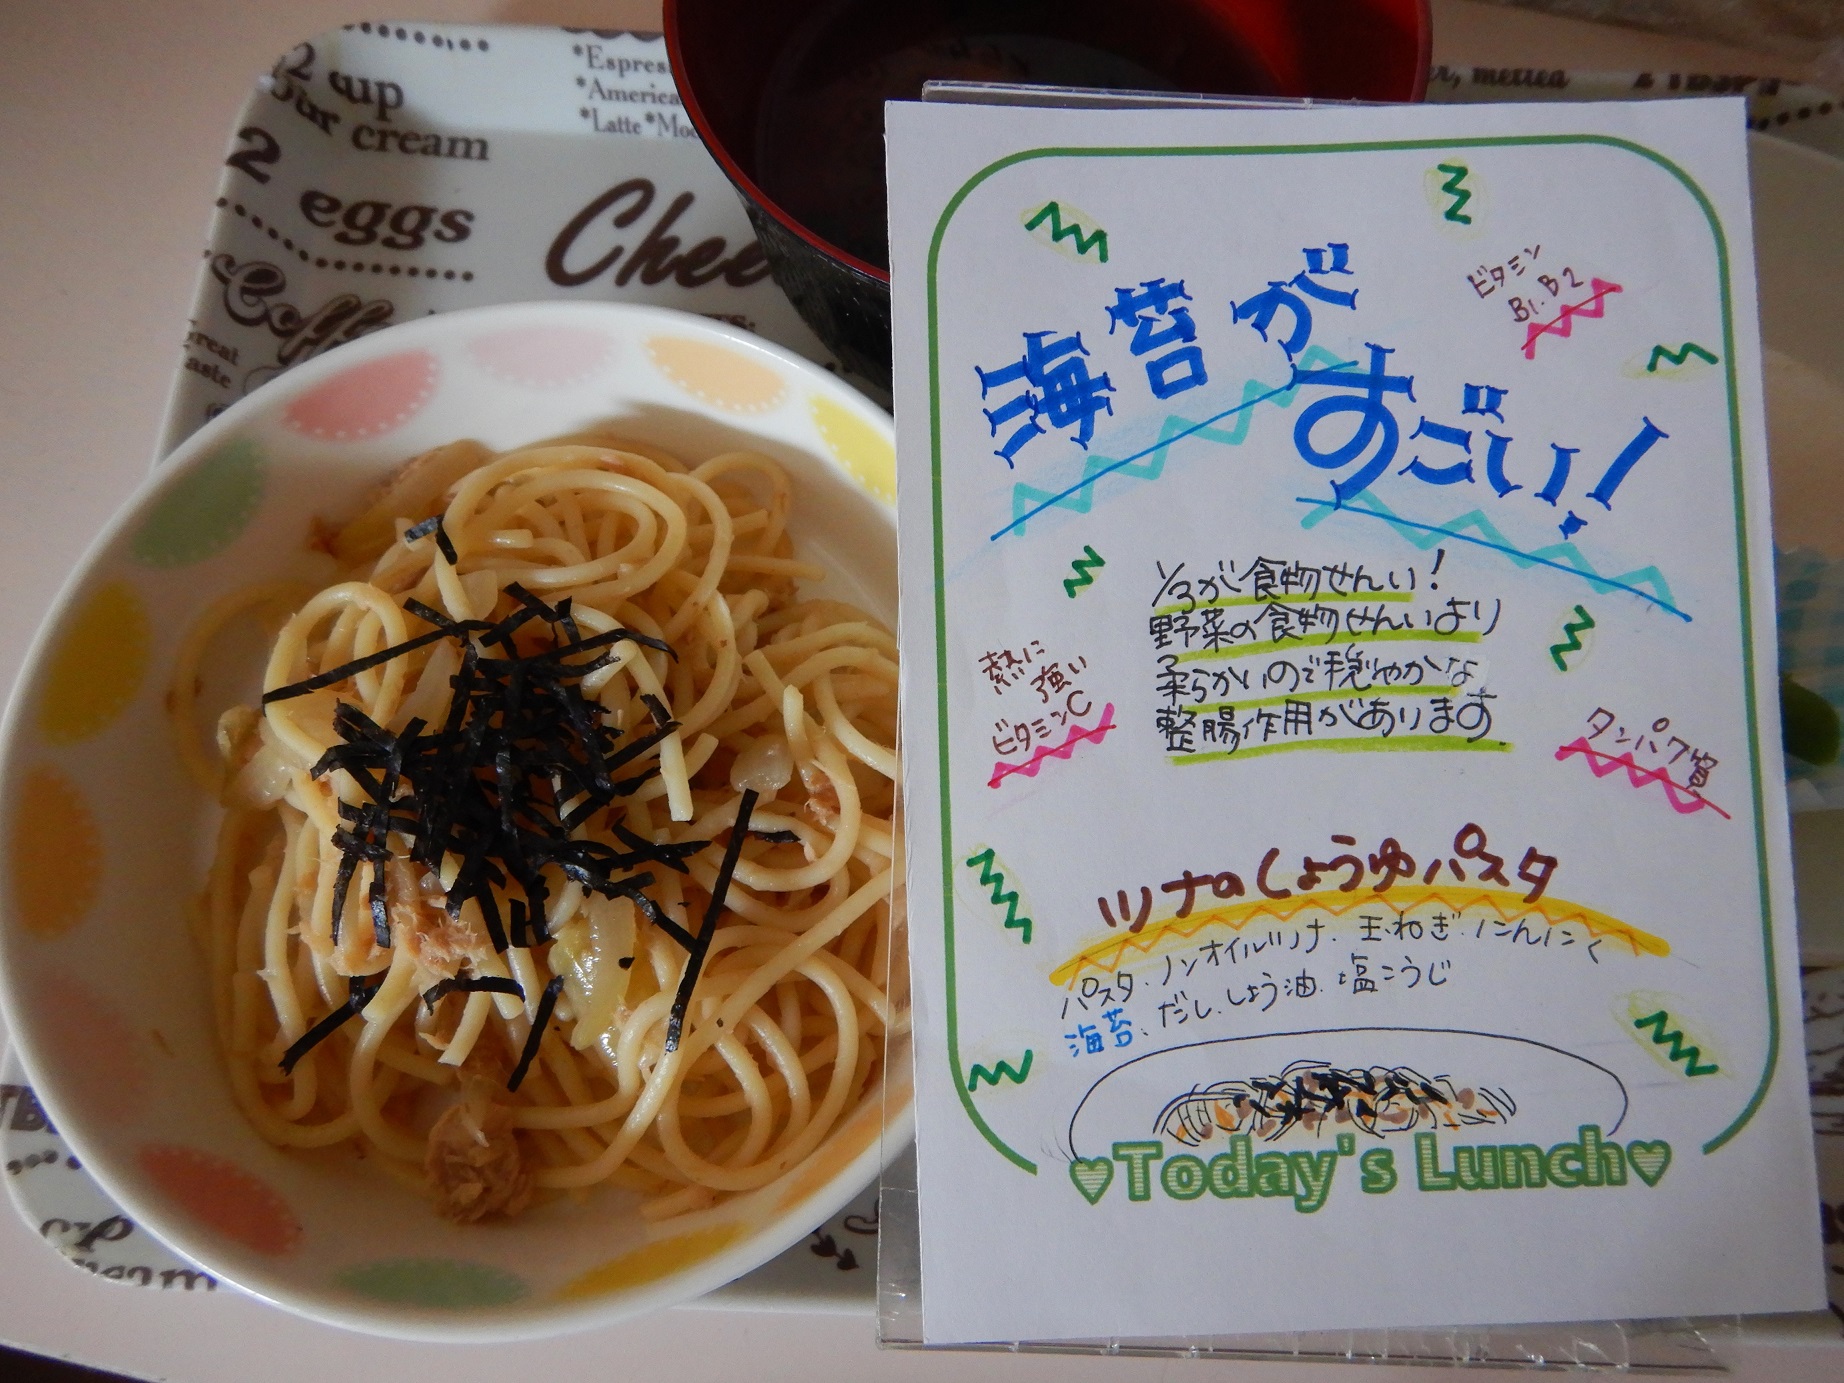 2 cup
our cream
2
eggs
Coff
great
taste
Chee
*Espres
*America
*Latte *Moc
er, melted
海苔が
すごい!
ビタミン
B1.B2
1/3が食物せんい!
野菜の食物せんいより
柔らかいので穏やかな
整腸作用があります.
熱に
強い
ビタミンC
タンパク質
ツナのしょうゆパスタ
パスタ.ノンオイルツナ.玉ねぎ.にんにく
海苔.だし.しょう油.塩こうじ
♥Today's Lunch♥